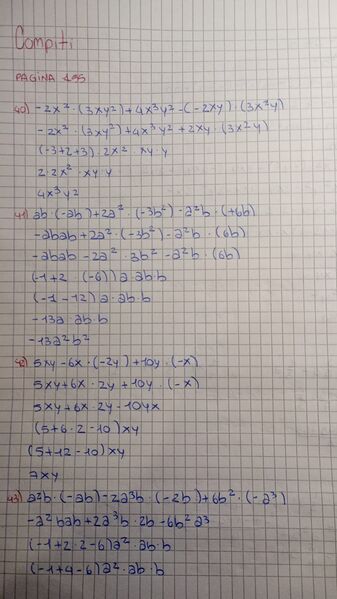 Compiti
PAGINA 195
40) -2x²·(3xy²)+4x³y²-(-2xy)·(3x²y)
-2x²·(3xy²)+4x³y²+2xy·(3x²y)
(-3+2+3)·2x²·xy·y
2·2x²·xy·y
4x³y²
41) ab·(-ab)+2a²·(-3b²)-a²b·(+6b)
-abab+2a²·(-3b²)-a²b·(6b)
-abab-2a²·3b²-a²b·(6b)
(-1+2·(-6))a·ab·b
(-1-12)a·ab·b
-13a·ab·b
-13a²b²
42) 5xy-6x·(-2y)+10y·(-x)
5xy+6x·2y+10y·(-x)
5xy+6x·2y-10yx
(5+6·2-10)xy
(5+12-10)xy
7xy
43) a²b·(-ab)-2a³b·(-2b)+6b²·(-a³)
-a²bab+2a³b·2b-6b²a³
(-1+2·2-6)a²·ab·b
(-1+4-6)a²·ab·b